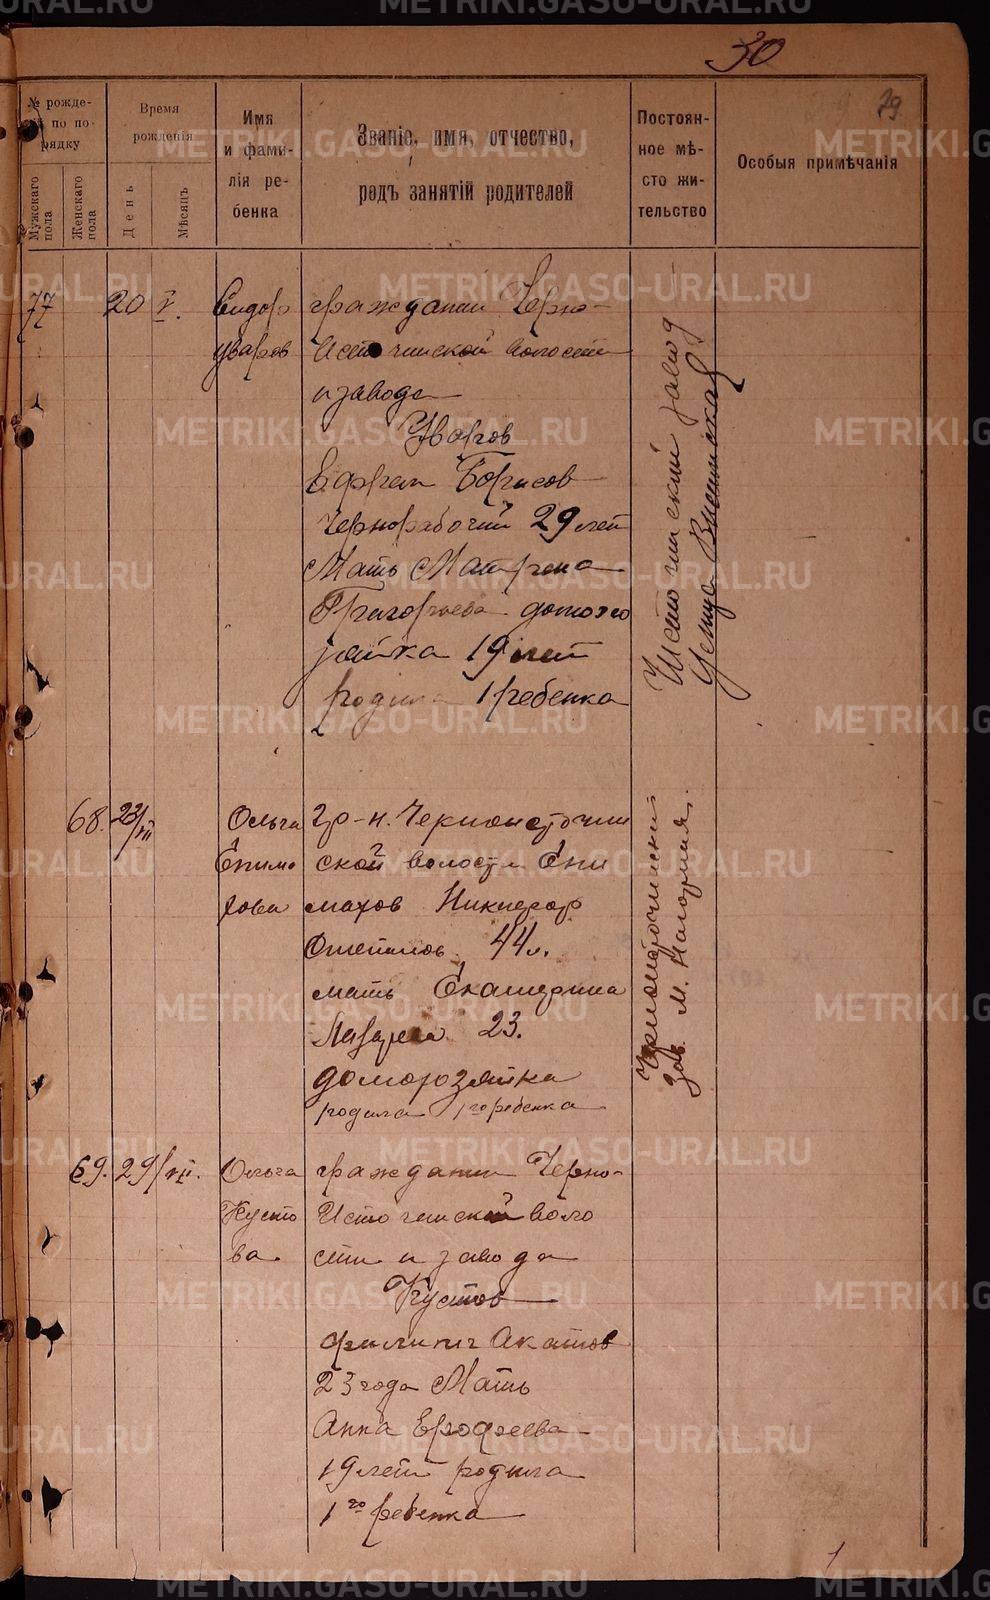 METRIKI.GASO-URAL.RU
30
29
№ рожде-
ній по по-
рядку
Мужскаго
пола
Женскаго
пола
Время
рожденія
День
Мѣсяцъ
Имя
и фами-
лія ре-
бенка
Званіе, имя, отчество,
родъ занятій родителей
Постоян-
ное мѣ-
сто жи-
тельство
Особыя примѣчанія
77
20 V.
Сидор
Уваров
гражданин Черно-
Источинской волости
и завода
Уваров
Ефрем Борисов
Чернорабочий 29 лет
Мать Матрена
Григорьева домохо
зяйка 19 лет
родила 1 ребенка
Источинский завод
68. 23/VII
Ольга
Епима
хова
гр-н. Черноисточин
ской волости Епи
махов Никифор
Степанов 44 л.
мать Екатерина
Лазарева 23.
домохозяйка
родила 1го ребенка
Черноисточинский
зав. м. Нагорная.
69. 29/VII.
Ольга
Кусто
ва
гражданин Черно-
Источинской воло
сти и завода
Кустов
Филипп Акатов
23 года Мать
Анна Ерофеева
19 лет родила
1го ребенка